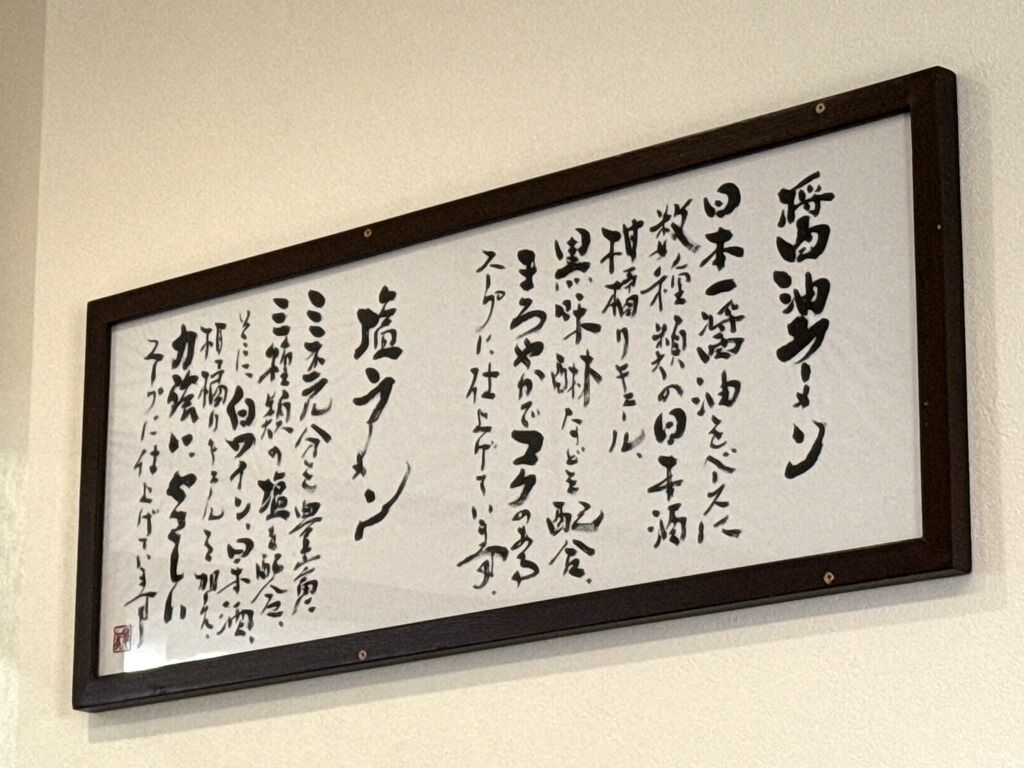 醤油ラーメン
日本一醤油をベースに
数種類の日本酒
柑橘リキュール、
黒味醂などを配合、
まろやかでコクのある
スープに仕上げています。
塩ラーメン
ミネラル分を豊富に
三種類の塩を配合、
さらに、白ワイン、日本酒、
柑橘リキュールを加え、
力強い、やさしい
スープに仕上げています